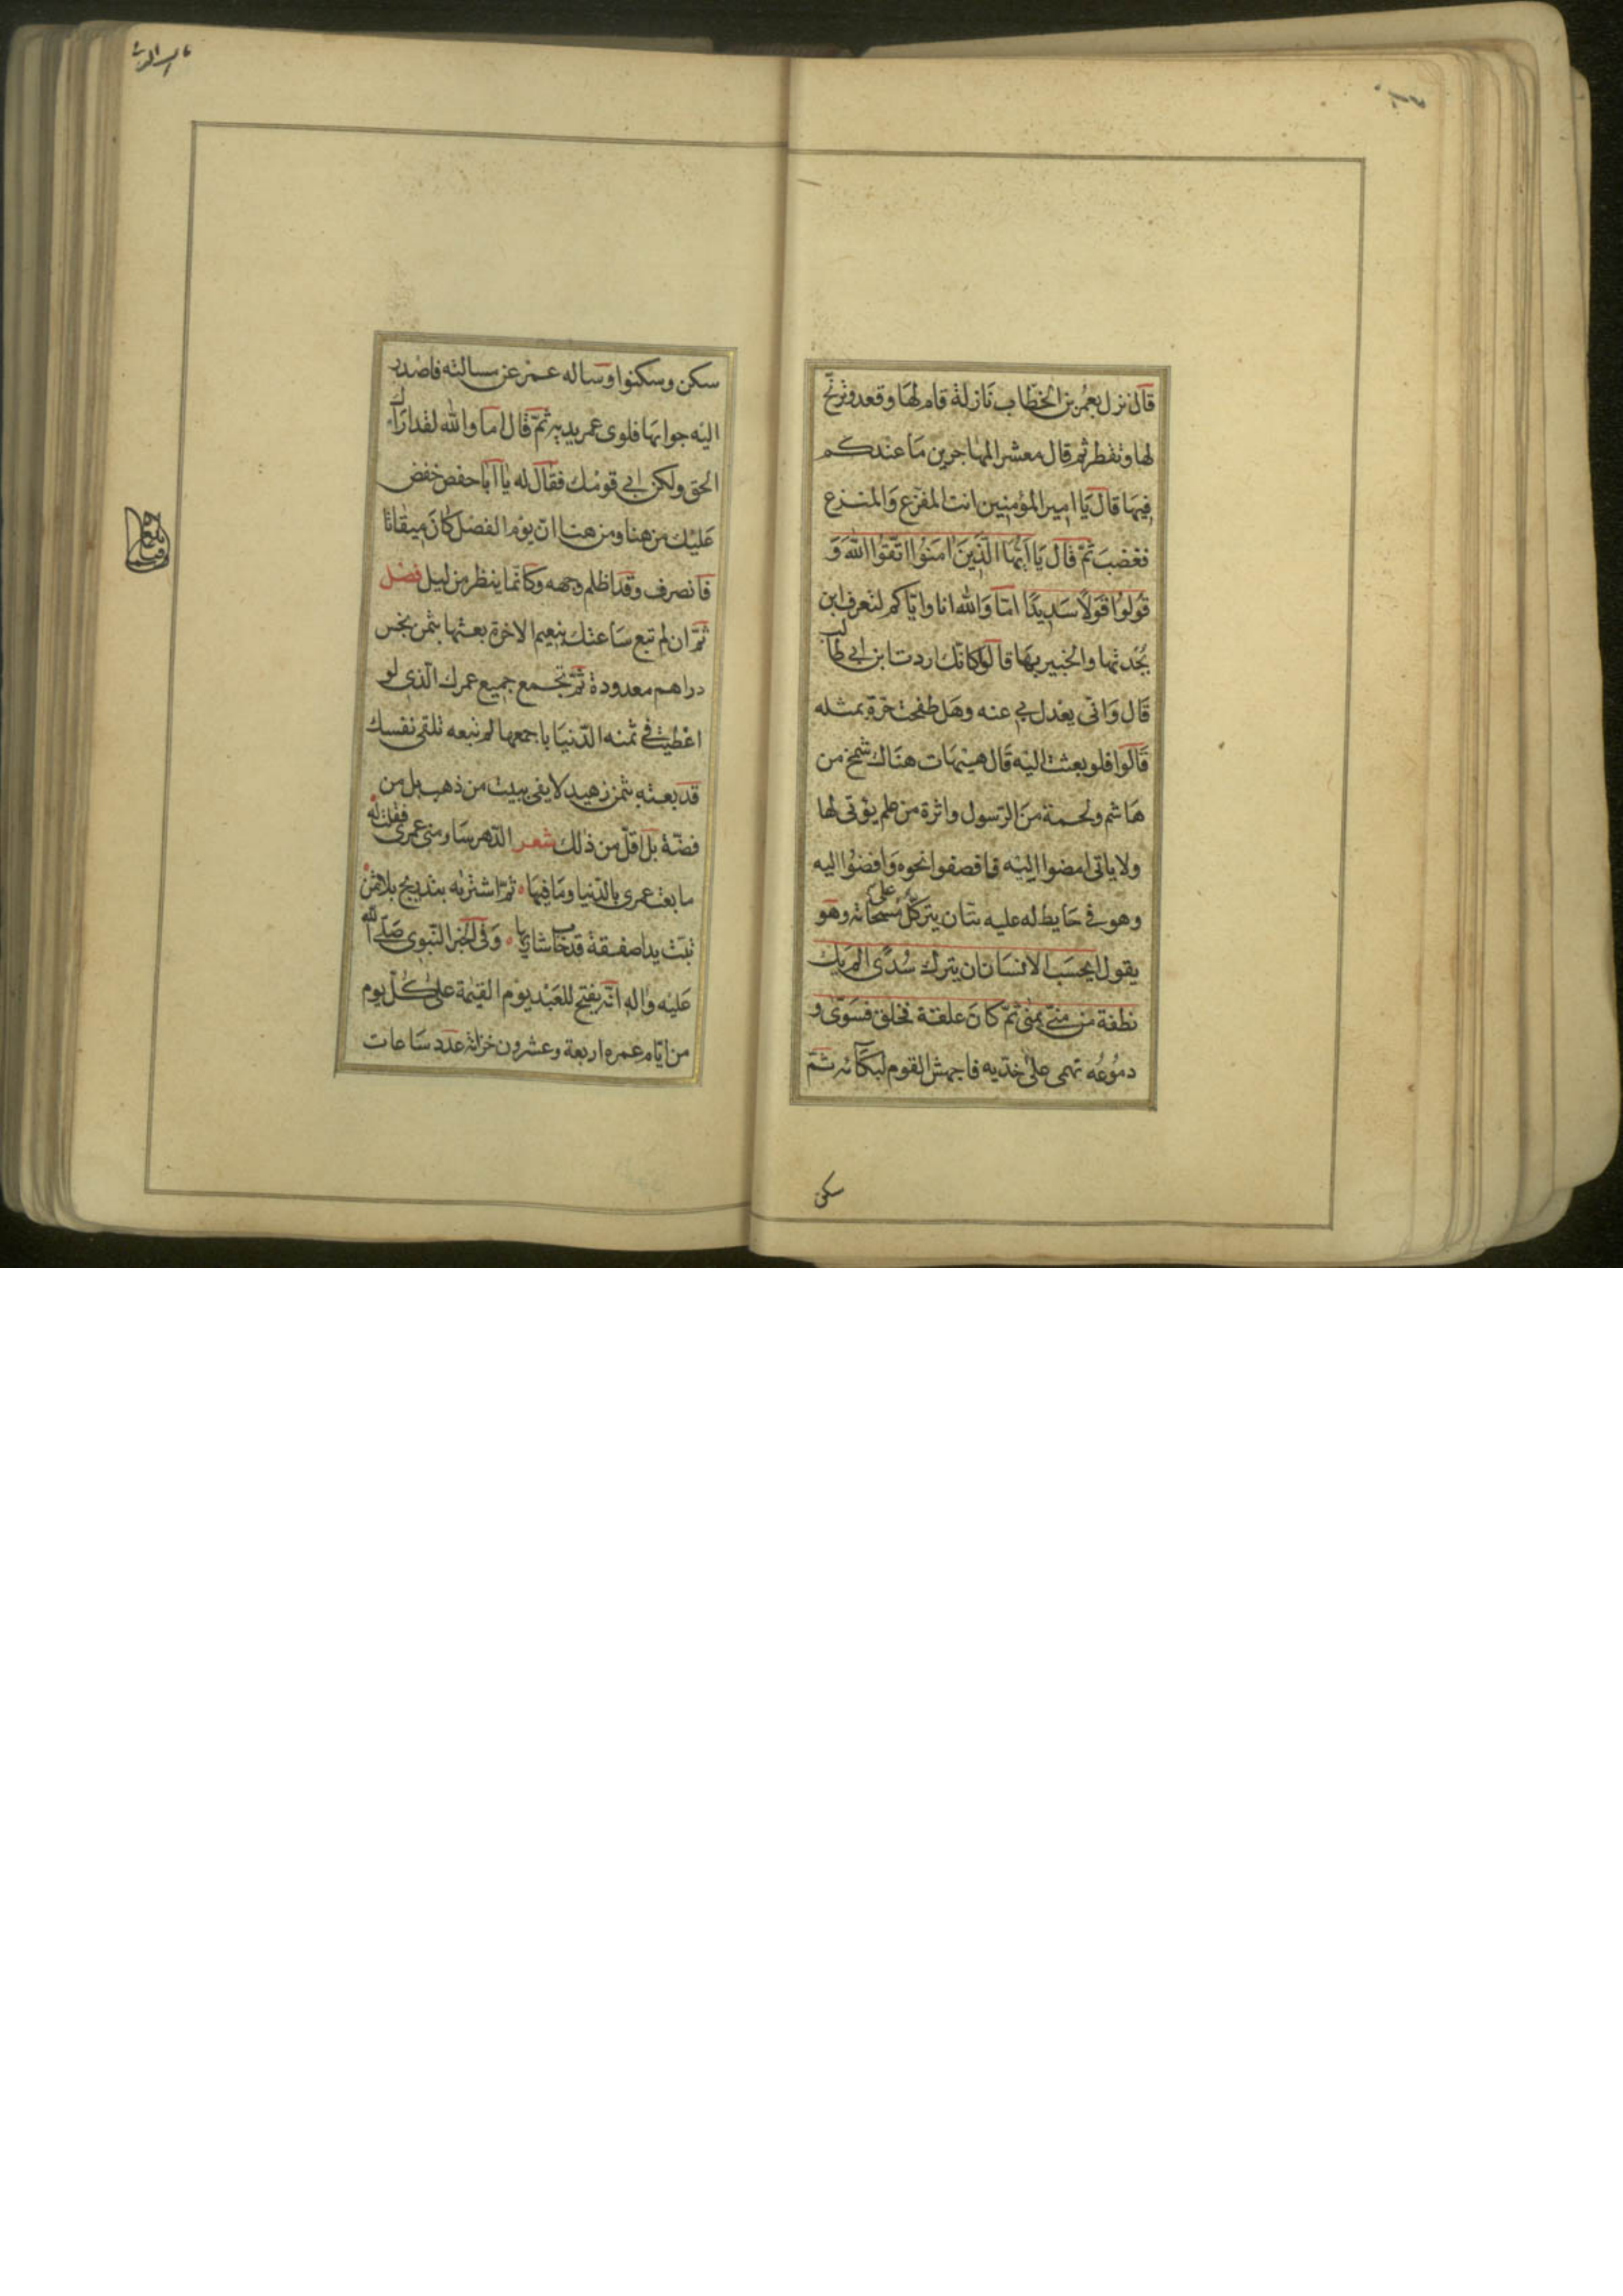 قال نزل بعمر بن الخطاب نازلة قام لها وقعد وترنح
لها وتفطر ثم قال معشر المهاجرين ما عندكم
فيها قال يا امير المؤمنين انت المفزع والمنزع
فغضب ثم قال يَا اَيُّهَا الَّذِينَ اٰمَنُوا اتَّقُوا اللّٰهَ وَ
قُولُوا قَوْلًا سَدِيدًا اما والله انا واياكم لنعرف ابن
بجدتها والخبير بها قالوا كانك اردت ابن ابي طالب
قال وانى يعدل بي عنه وهل طفحت حرة بمثله
قالوا فلو بعثت اليه قال هيهات هناك شمخ من
هاشم ولحمة من الرسول واثرة من علم يؤتى لها
ولا ياتى امضوا اليه فاقصفوا نحوه وافضوا اليه
وهو في حايط له عليه تبان يتركل على مسحاته وهو
يقول ايحسب الانسان ان يترك سُدًى الم يك
نطفة من منيّ يمنى ثمّ كان علقة فخلق فسوّى و
دموعه تهمى على خديه فاجهش القوم لبكائه ثمّ
سكن
سكن وسكنوا وساله عمر عن مسالته فاصدر
اليه جوابها فلوى عمر يديه ثمّ قال اما والله لقد ارادك
الحق ولكن ابى قومك فقال له يا ابا حفص خفض
عليك من هنا ومن هنا انّ يوم الفصل كان ميقاتا
فانصرف وقد اظلم وجهه وكانّما ينظر من ليل فصل
ثمّ ان لم تبع ساعتك بنعيم الاخرة بعتها بثمن بخس
دراهم معدودة ثمّ تجمع جميع عمرك الّذى لو
اعطيت في ثمنه الدّنيا باجمعها لم تبعه تلقى نفسك
قد بعته بثمن زهيد لا يفى ببيت من ذهب بل من
فضّة بل اقلّ من ذلك شعر الدّهر ساومنى عمرى فقلت له
ما بعت عمرى بالدّنيا وما فيها ثمّ اشتريه بتدريج بلا ثمن
تبّت يدا صفقة قد خاب شاريها وفى الخبر النّبوى صلّى الله
عليه واله انّه يفتح للعبد يوم القيمة على كلّ يوم
من ايّام عمره اربعة وعشرون خزانة عدد ساعات